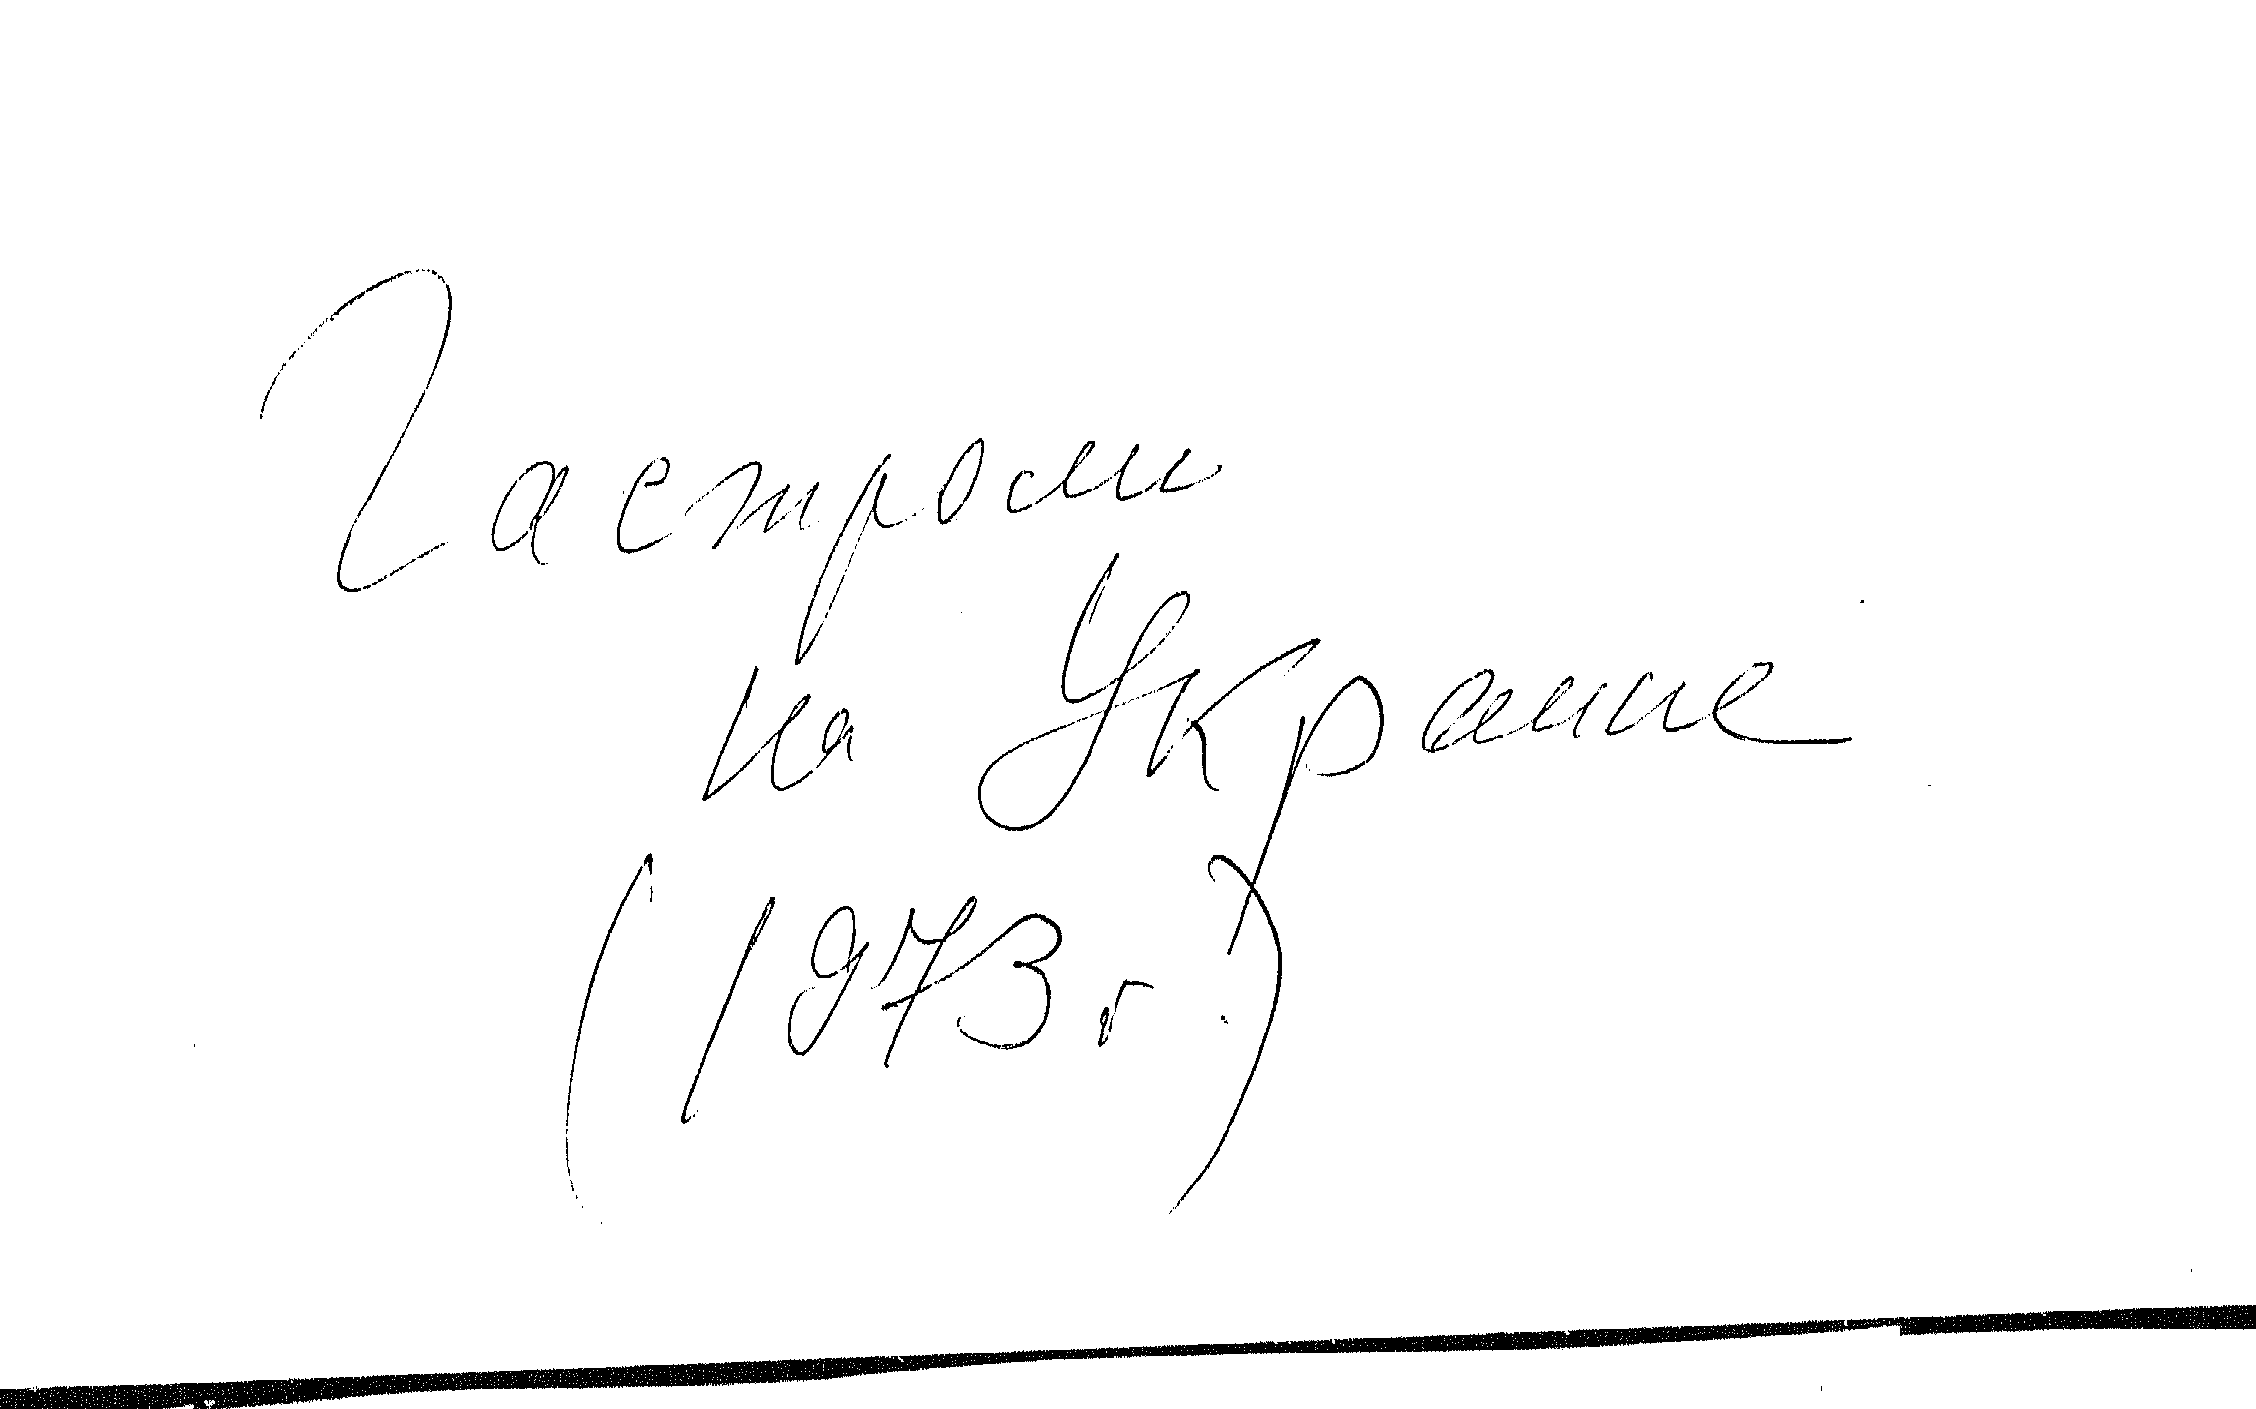 Гастроли
на Украине
(1973 г.)